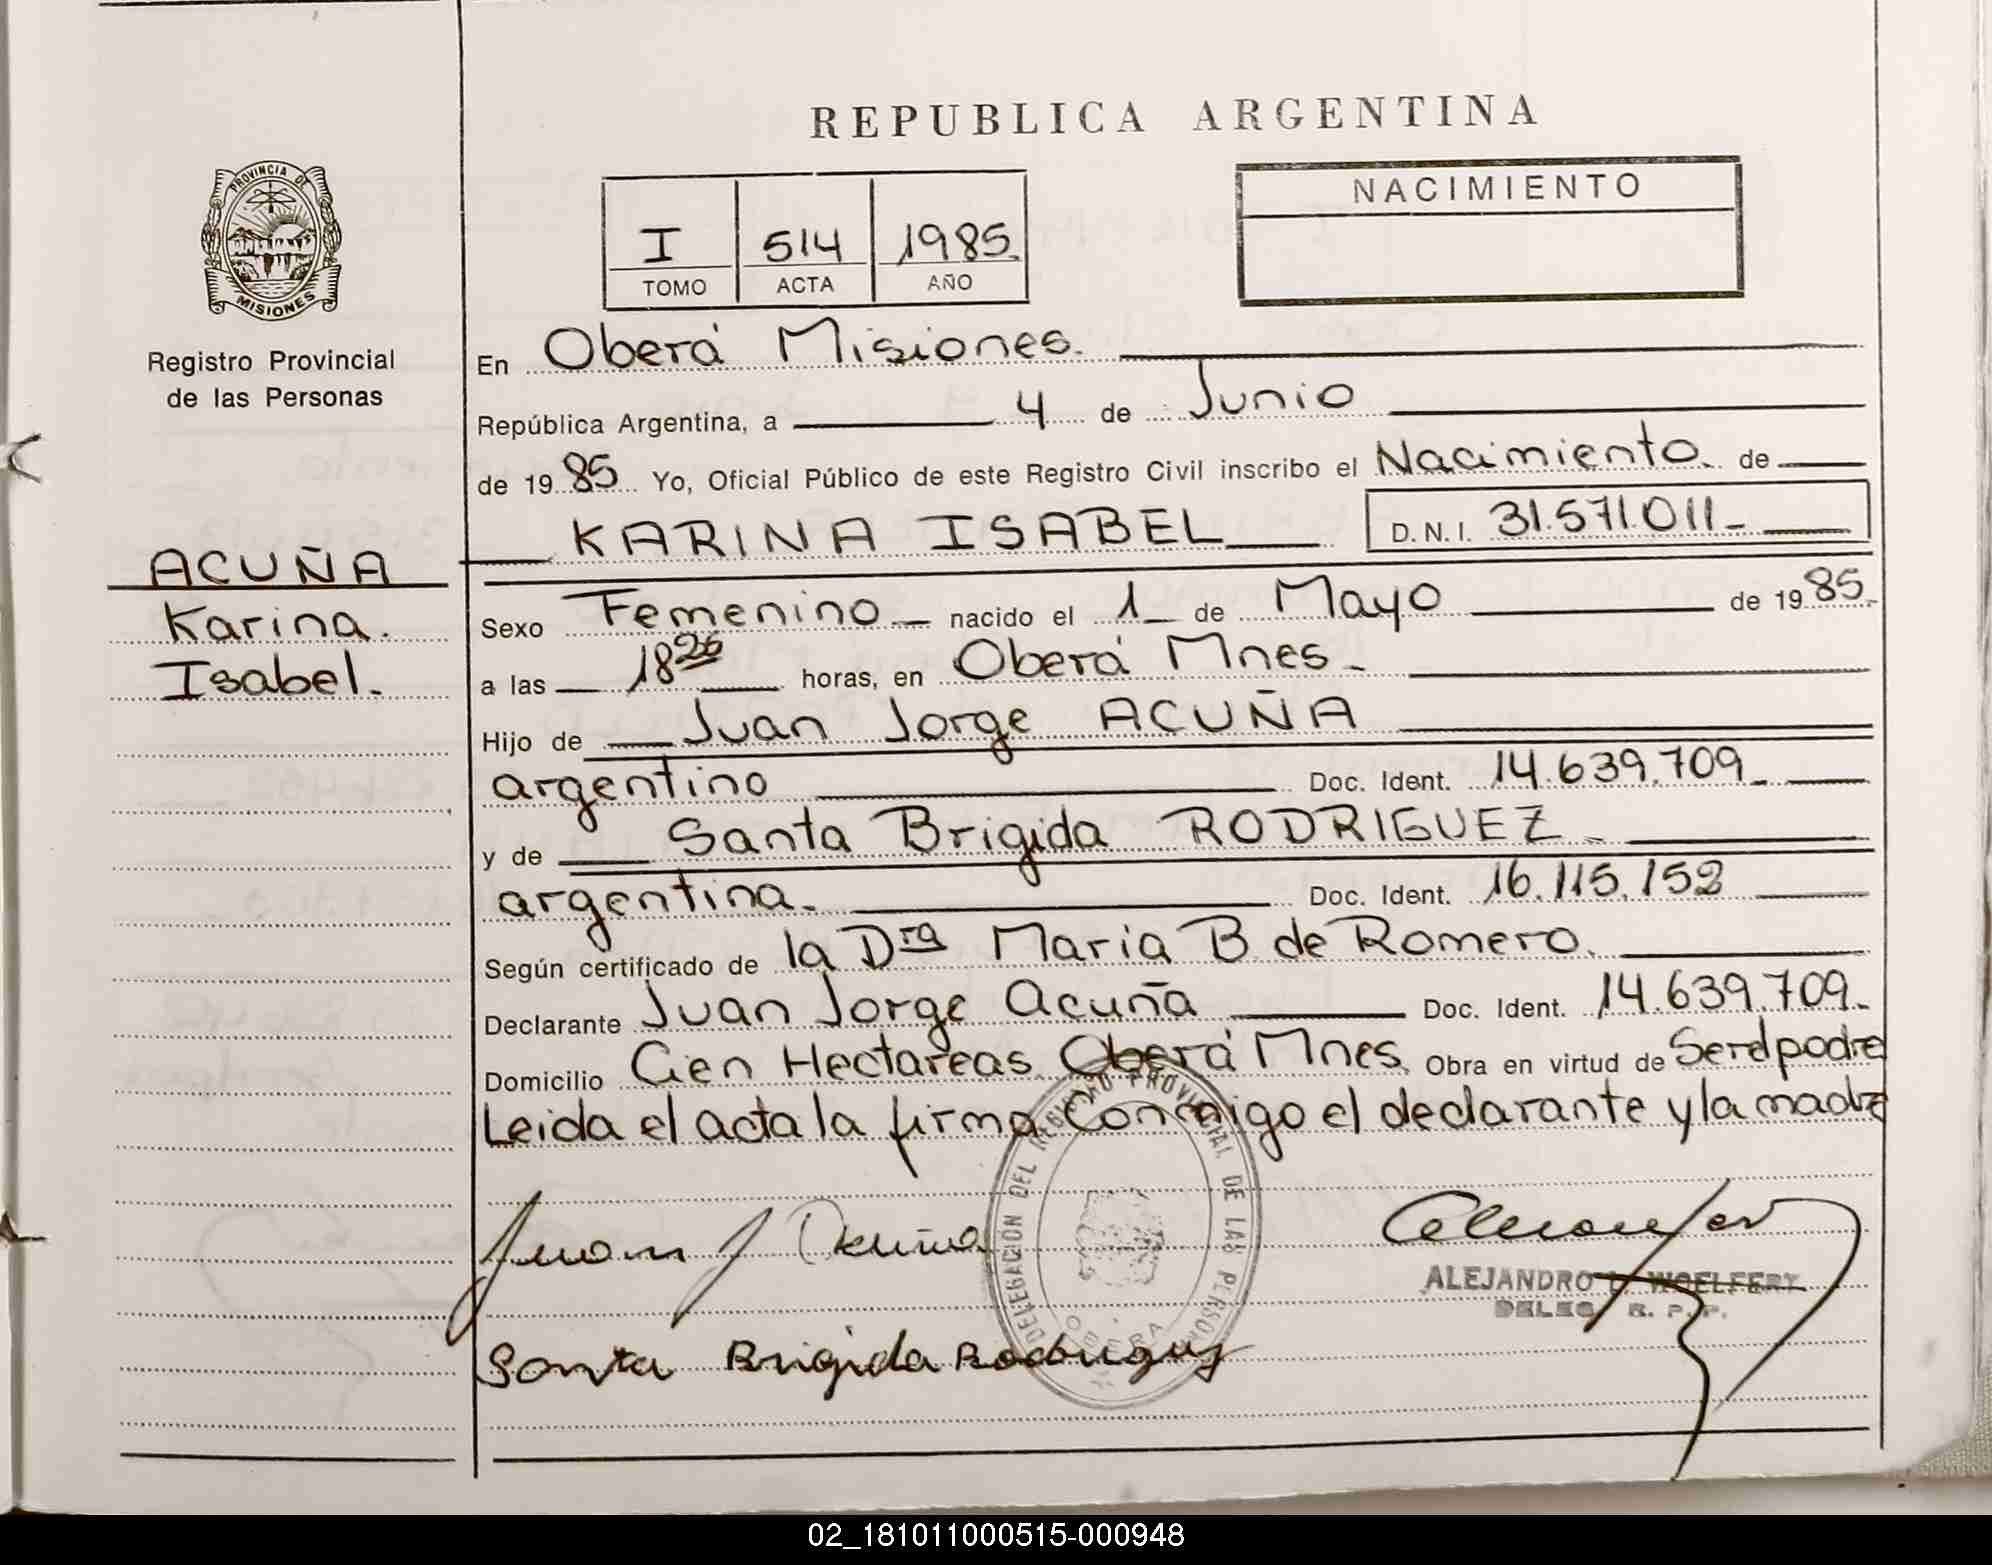 REPUBLICA ARGENTINA
PROVINCIA DE
MISIONES
Registro Provincial
de las Personas
I 514 1985
TOMO ACTA AÑO
NACIMIENTO
En Oberá Misiones.
República Argentina, a 4 de Junio
de 1985 Yo, Oficial Público de este Registro Civil inscribo el Nacimiento de
KARINA ISABEL D.N.I. 31.571.011-
ACUÑA
Karina.
Isabel.
Sexo Femenino nacido el 1 de Mayo de 1985.
a las 18 26 horas, en Oberá Mnes-
Hijo de Juan Jorge ACUÑA
argentino Doc. Ident. 14.639.709-
y de Santa Brigida RODRIGUEZ
argentina. Doc. Ident. 16.115.152
Según certificado de la Dra Maria B de Romero.
Declarante Juan Jorge Acuña Doc. Ident. 14.639.709-
Domicilio Cien Hectareas Oberá Mnes. Obra en virtud de Ser el padre
Leida el acta la firma Conmigo el declarante y la madre
Juan J Acuña
ALEJANDRO L. WOELFERT
DELEG. R. P. P.
Santa Brigida Rodriguez
DELEGACION DEL REGISTRO PROVINCIAL DE LAS PERSONAS
OBERA
02_181011000515-000948